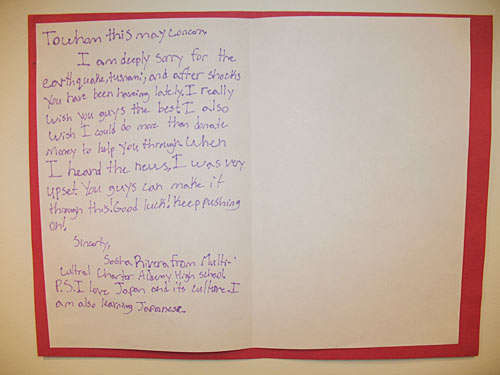 To whom this may concern,
I am deeply sorry for the
earthquake, tusnami, and after shocks
you have been haveing lately. I really
wish you guys the best. I also
wish I could do more than donate
money to help you through. When
I heard the news, I was very
upset. You guys can make it
through this! Good luck! Keep pushing
on!
Sincerly,
Sasha Rivera from Multi-
Cultral Charter Academy High school
P.S. I love Japan and its culture. I
am also learning Japanese.